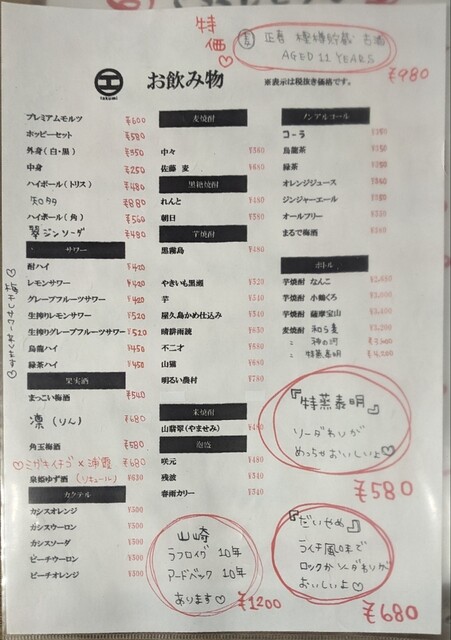 特価♡
正春 樫樽貯蔵 古酒
AGED 11 YEARS
¥980
takumi
お飲み物
※表示は税抜き価格です。
プレミアムモルツ ¥600
ホッピーセット ¥580
外身(白・黒) ¥350
中身 ¥250
ハイボール(トリス) ¥480
知多 ¥880
ハイボール(角) ¥560
翠ジンソーダ ¥480
サワー
酎ハイ ¥420
レモンサワー ¥420
グレープフルーツサワー ¥420
生搾りレモンサワー ¥520
生搾りグレープフルーツサワー ¥520
烏龍ハイ ¥450
緑茶ハイ ¥450
♡梅干しサワーあります♡
果実酒
まっこい梅酒 ¥540
凛(りん) ¥680
角玉梅酒 ¥580
♡こがねイチゴ×浦霞 ¥680
泉姫ゆず酒(リキュール) ¥630
カクテル
カシスオレンジ ¥500
カシスウーロン ¥500
カシスソーダ ¥500
ピーチウーロン ¥500
ピーチオレンジ ¥500
麦焼酎
中々 ¥560
佐藤 麦 ¥680
黒糖焼酎
れんと ¥480
朝日 ¥580
芋焼酎
黒霧島 ¥480
やきいも黒瀬 ¥520
芋 ¥510
屋久島かめ仕込み ¥540
晴耕雨読
不二才 ¥580
山猫 ¥680
明るい農村 ¥780
米焼酎
山翡翠(やませみ) ¥480
泡盛
咲元 ¥480
残波 ¥540
春雨カリー ¥540
ノンアルコール
コーラ ¥350
烏龍茶 ¥350
緑茶 ¥350
オレンジジュース
ジンジャーエール ¥350
オールフリー
まるで梅酒
ボトル
芋焼酎 なんこ
芋焼酎 小鶴くろ
芋焼酎 薩摩宝山
麦焼酎 和ら麦
〃 神の河
〃 特蒸泰明
『特蒸泰明』
ソーダわりが
めっちゃおいしいよ♡
¥580
山崎
ラフロイグ 10年
アードベック 10年
あります♡
¥1200
『だいやめ』
ライチ風味で
ロックかソーダわりが
おいしいよ♡
¥680